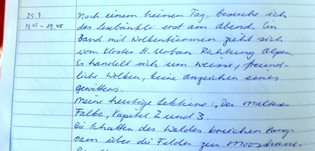 25.7 Nach einem heissen Tag, besuche ich
18.45 - 19.45 das Lesebänkli erst am Abend. Ein
Band mit Wolkentürmen zieht sich
vom Kloster St. Urban Richtung Alpen.
Es handelt sich um weisse, freund-
liche Wolken, keine Anzeichen eines
Gewitters.
Meine heutige Lektüre: der Malteser
Falke, Kapitel 2 und 3
Die Schatten des Waldes kriechen lang-
sam über die Felder zur